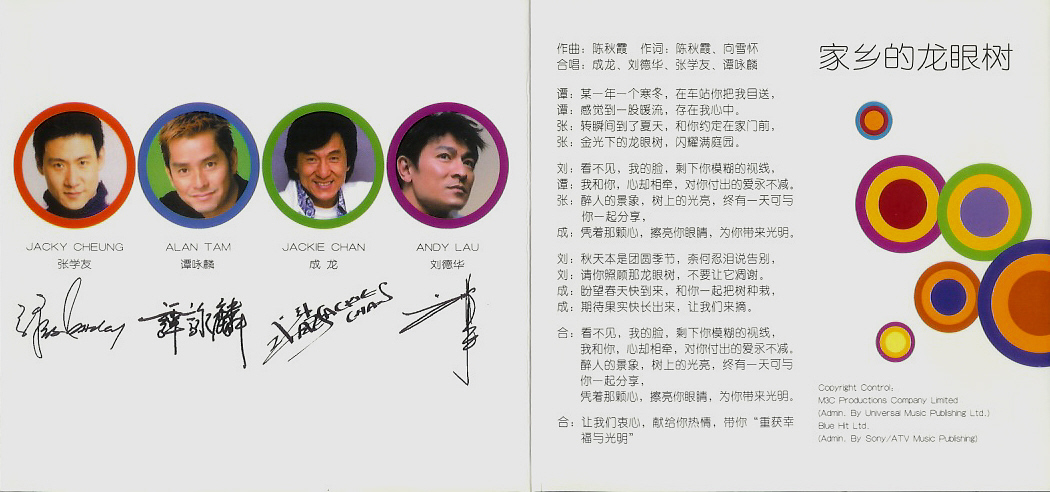 JACKY CHEUNG
张学友
ALAN TAM
谭咏麟
JACKIE CHAN
成 龙
ANDY LAU
刘德华
譚詠麟
JACKIE
CHAN
家乡的龙眼树
作曲：陈秋霞 作词：陈秋霞、向雪怀
合唱：成龙、刘德华、张学友、谭咏麟
谭：某一年一个寒冬，在车站你把我目送，
谭：感觉到一股暖流，存在我心中。
张：转瞬间到了夏天，和你约定在家门前，
张：金光下的龙眼树，闪耀满庭园。
刘：看不见，我的脸，剩下你模糊的视线，
谭：我和你，心却相牵，对你付出的爱永不减。
张：醉人的景象，树上的光亮，终有一天可与
你一起分享，
成：凭着那颗心，擦亮你眼睛，为你带来光明。
刘：秋天本是团圆季节，奈何忍泪说告别，
刘：请你照顾那龙眼树，不要让它凋谢。
成：盼望春天快到来，和你一起把树种栽，
成：期待果实快长出来，让我们来摘。
合：看不见，我的脸，剩下你模糊的视线，
我和你，心却相牵，对你付出的爱永不减。
醉人的景象，树上的光亮，终有一天可与
你一起分享，
凭着那颗心，擦亮你眼睛，为你带来光明。
合：让我们衷心，献给你热情，带你“重获幸
福与光明”
Copyright Control:
M3C Productions Company Limited
(Admn. By Universal Music Publishing Ltd.)
Blue Hit Ltd.
(Admn. By Sony/ATV Music Publishing)